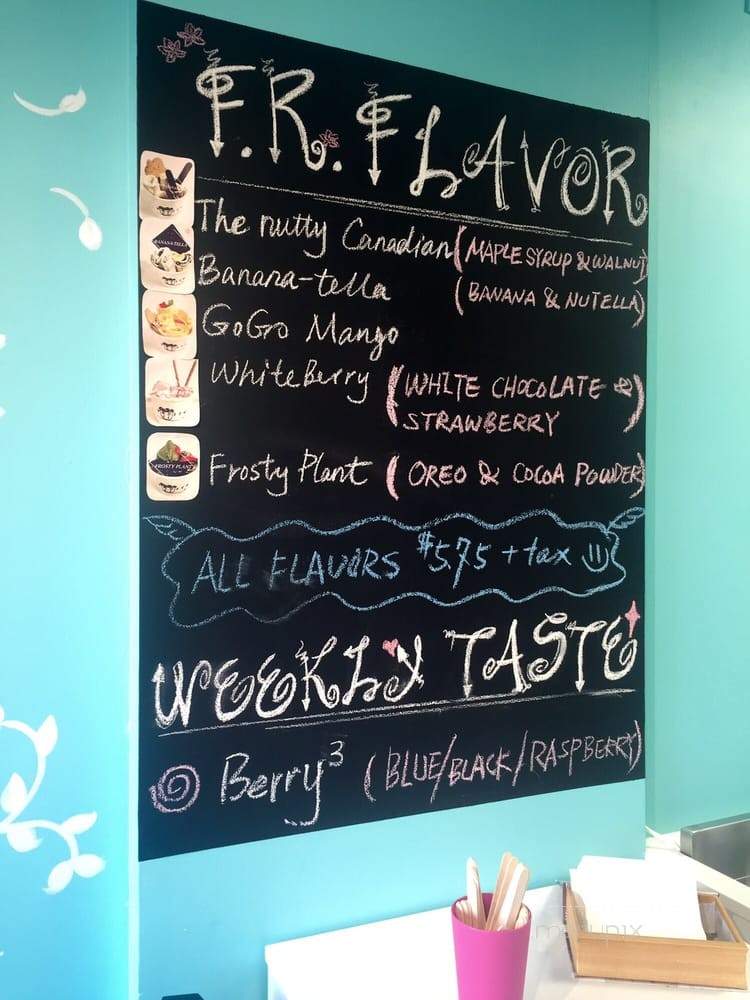 F.R. FLAVOR
The nutty Canadian (MAPLE SYRUP & WALNUT)
BANANATELLA
Banana-tella (BANANA & NUTELLA)
GoGo Mango
WhiteBerry (WHITE CHOCOLATE &
STRAWBERRY)
FROSTY PLANT
Frosty Plant (OREO & COCOA POWDER)
ALL FLAVORS $5.75 + tax
WEEKLY TASTE
Berry³ (BLUE/BLACK/RASPBERRY)